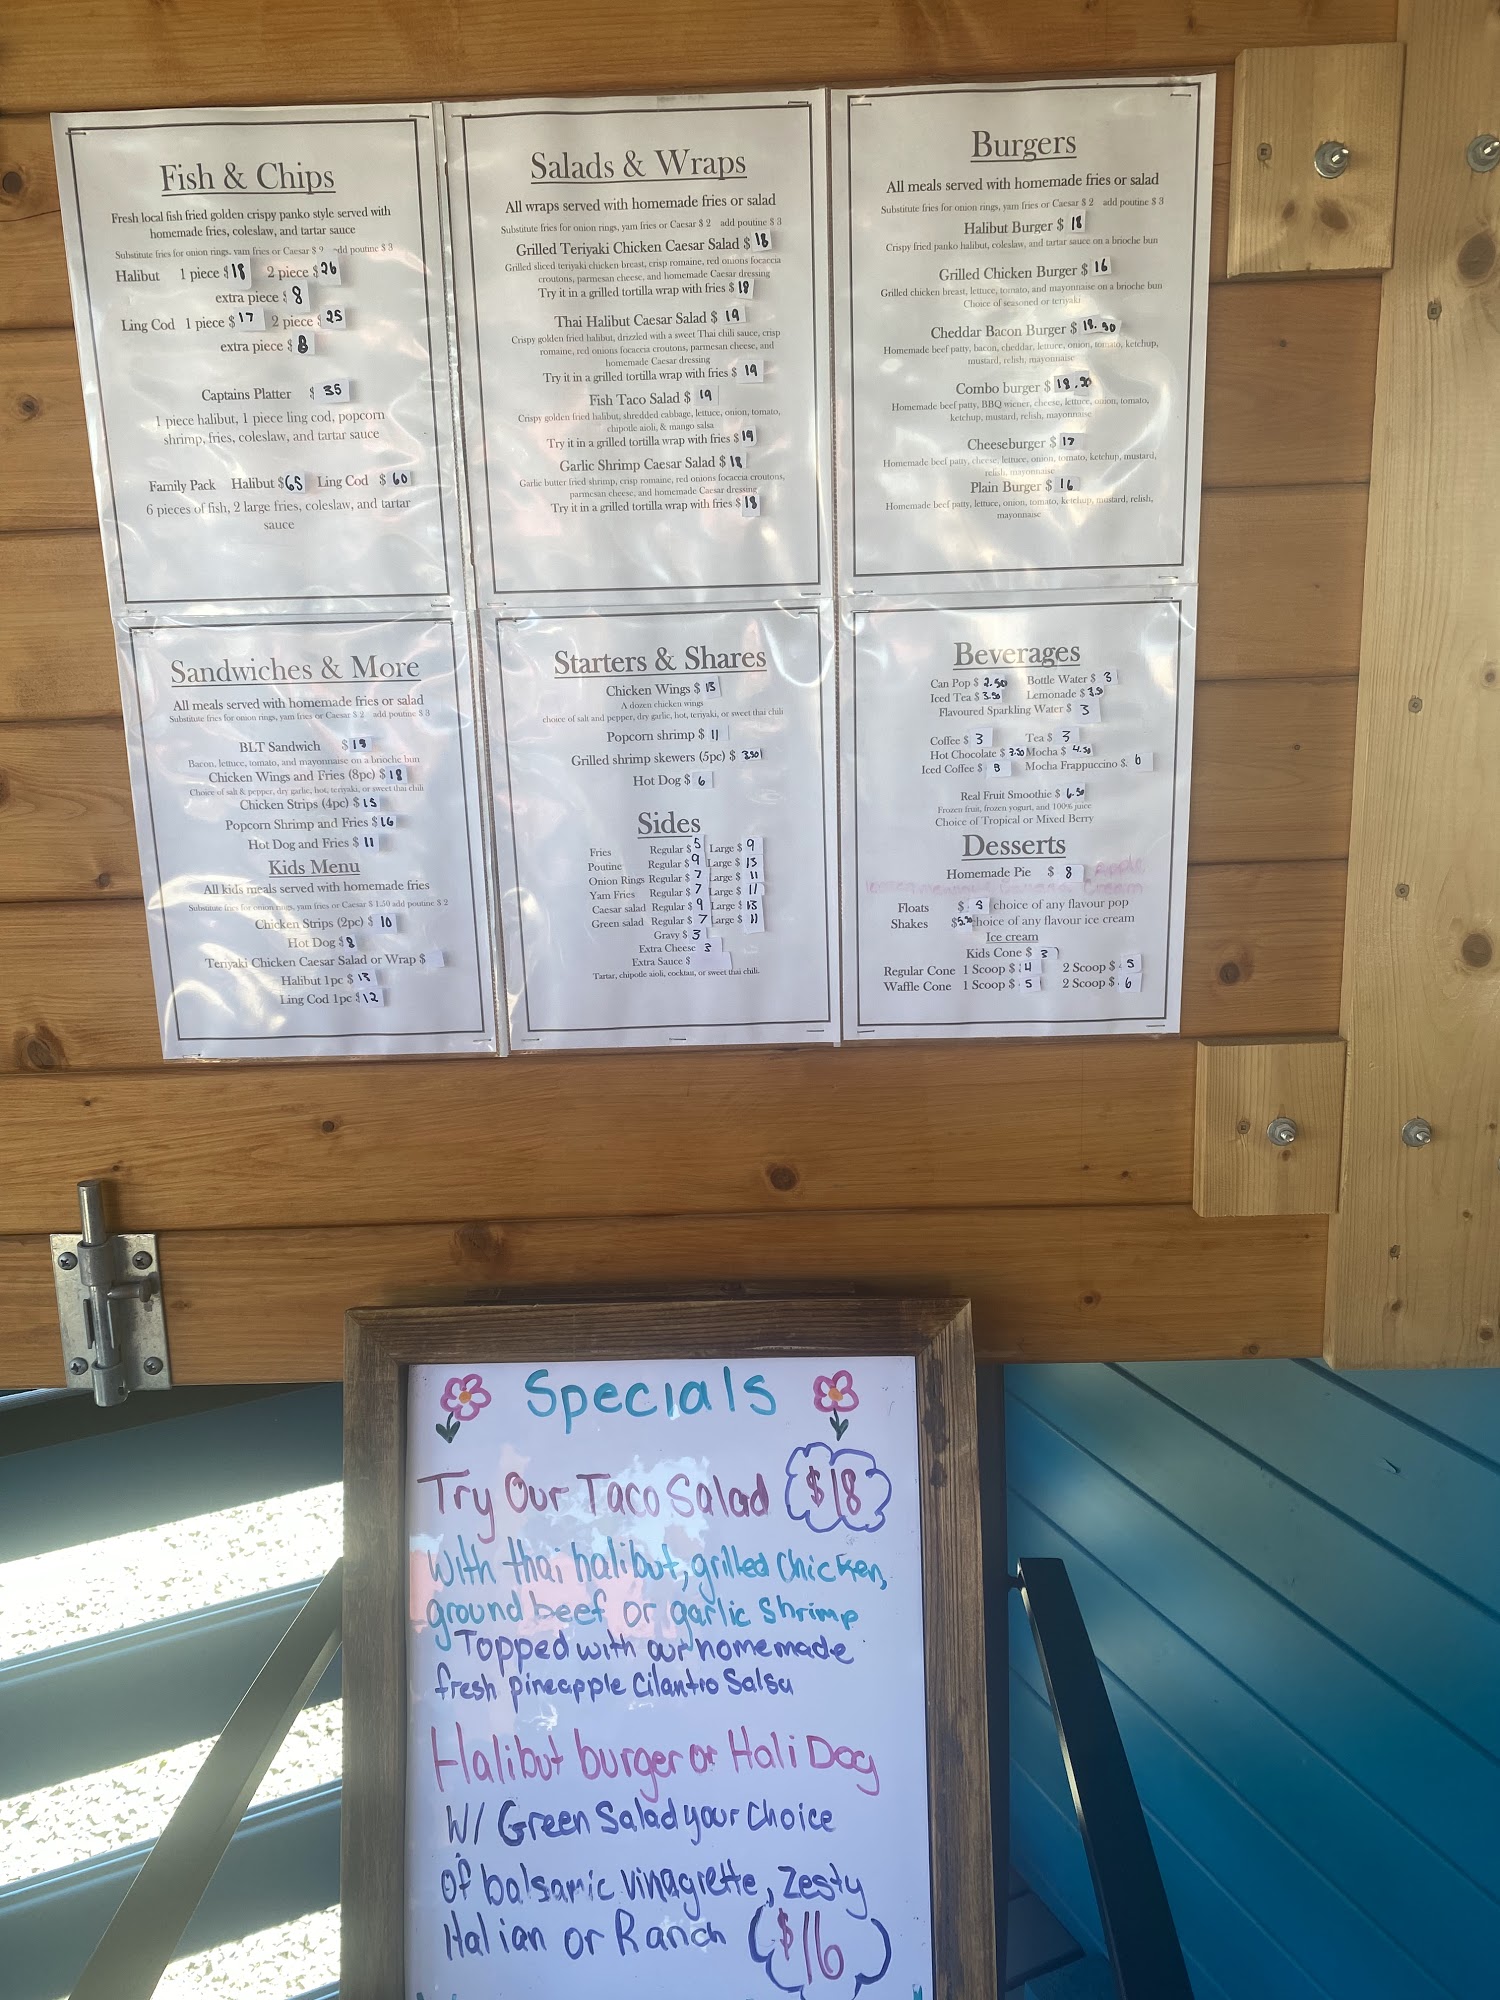 Fish & Chips
Fresh local fish fried golden crispy panko style served with
homemade fries, coleslaw, and tartar sauce
Substitute fries for onion rings, yam fries or Caesar $ add poutine $ 3
Halibut 1 piece $ 18 2 piece $ 26
extra piece $ 8
Ling Cod 1 piece $ 17 2 piece $ 25
extra piece $ 8
Captains Platter $ 35
1 piece halibut, 1 piece ling cod, popcorn
shrimp, fries, coleslaw, and tartar sauce
Family Pack Halibut $ 65 Ling Cod $ 60
6 pieces of fish, 2 large fries, coleslaw, and tartar
sauce
Salads & Wraps
All wraps served with homemade fries or salad
Substitute fries for onion rings, yam fries or Caesar $ 2 add poutine $ 3
Grilled Teriyaki Chicken Caesar Salad $ 18
Grilled sliced teriyaki chicken breast, crisp romaine, red onions focaccia
croutons, parmesan cheese, and homemade Caesar dressing
Try it in a grilled tortilla wrap with fries $ 18
Thai Halibut Caesar Salad $ 19
Crispy golden fried halibut, drizzled with a sweet Thai chili sauce, crisp
romaine, red onions focaccia croutons, parmesan cheese, and
homemade Caesar dressing
Try it in a grilled tortilla wrap with fries $ 19
Fish Taco Salad $ 19
Crispy golden fried halibut, shredded cabbage, lettuce, onion, tomato,
chipotle aioli, & mango salsa
Try it in a grilled tortilla wrap with fries $ 19
Garlic Shrimp Caesar Salad $ 18
Garlic butter fried shrimp, crisp romaine, red onions focaccia croutons,
parmesan cheese, and homemade Caesar dressing
Try it in a grilled tortilla wrap with fries $ 18
Burgers
All meals served with homemade fries or salad
Substitute fries for onion rings, yam fries or Caesar $ 2 add poutine $ 3
Halibut Burger $ 18
Crispy fried panko halibut, coleslaw, and tartar sauce on a brioche bun
Grilled Chicken Burger $ 16
Grilled chicken breast, lettuce, tomato, and mayonnaise on a brioche bun
Choice of seasoned or teriyaki
Cheddar Bacon Burger $ 18.50
Homemade beef patty, bacon, cheddar, lettuce, onion, tomato, ketchup,
mustard, relish, mayonnaise
Combo burger $ 18.50
Homemade beef patty, BBQ wiener, cheese, lettuce, onion, tomato,
ketchup, mustard, relish, mayonnaise
Cheeseburger $ 17
Homemade beef patty, cheese, lettuce, onion, tomato, ketchup, mustard,
relish, mayonnaise
Plain Burger $ 16
Homemade beef patty, lettuce, onion, tomato, ketchup, mustard, relish,
mayonnaise
Sandwiches & More
All meals served with homemade fries or salad
Substitute fries for onion rings, yam fries or Caesar $ 2 add poutine $ 3
BLT Sandwich $
Bacon, lettuce, tomato, and mayonnaise on a brioche bun
Chicken Wings and Fries (8pc) $ 18
Choice of salt & pepper, dry garlic, hot, teriyaki, or sweet thai chili
Chicken Strips (4pc) $ 15
Popcorn Shrimp and Fries $ 16
Hot Dog and Fries $ 11
Kids Menu
All kids meals served with homemade fries
Substitute fries for onion rings, yam fries or Caesar $ 1.50 add poutine $ 2
Chicken Strips (2pc) $ 10
Hot Dog $ 8
Teriyaki Chicken Caesar Salad or Wrap $
Halibut 1pc $ 13
Ling Cod 1pc $ 12
Starters & Shares
Chicken Wings $ 15
A dozen chicken wings
choice of salt and pepper, dry garlic, hot, teriyaki, or sweet thai chili
Popcorn shrimp $ 11
Grilled shrimp skewers (5pc) $ 3.50
Hot Dog $ 6
Sides
Fries Regular $ 5 Large $ 9
Poutine Regular $ 9 Large $ 13
Onion Rings Regular $ 7 Large $ 11
Yam Fries Regular $ 7 Large $ 11
Caesar salad Regular $ 9 Large $ 13
Green salad Regular $ 7 Large $ 11
Gravy $ 3
Extra Cheese 3
Extra Sauce $
Tartar, chipotle aioli, cocktail, or sweet thai chili.
Beverages
Can Pop $ 2.50 Bottle Water $ 3
Iced Tea $ 3.50 Lemonade $ 3.50
Flavoured Sparkling Water $ 3
Coffee $ 3 Tea $ 3
Hot Chocolate $ 3.50 Mocha $ 4.50
Iced Coffee $ Mocha Frappuccino $. 6
Real Fruit Smoothie $ 6.50
Frozen fruit, frozen yogurt, and 100% juice
Choice of Tropical or Mixed Berry
Desserts
Homemade Pie $ 8 Apple
lemon meringue Banana Cream
Floats $ 5 choice of any flavour pop
Shakes $ 5.50 hoice of any flavour ice cream
Ice cream
Kids Cone $ 3
Regular Cone 1 Scoop $ 4 2 Scoop $ 5
Waffle Cone 1 Scoop $ 5 2 Scoop $ 6
Specials
Try Our Taco Salad $18
With thai halibut, grilled chicken,
ground beef or garlic shrimp
Topped with our homemade
fresh pineapple Cilantro Salsa
Halibut burger or Hali Dog
W/ Green Salad your choice
of balsamic vinagrette, Zesty
Italian or Ranch $16